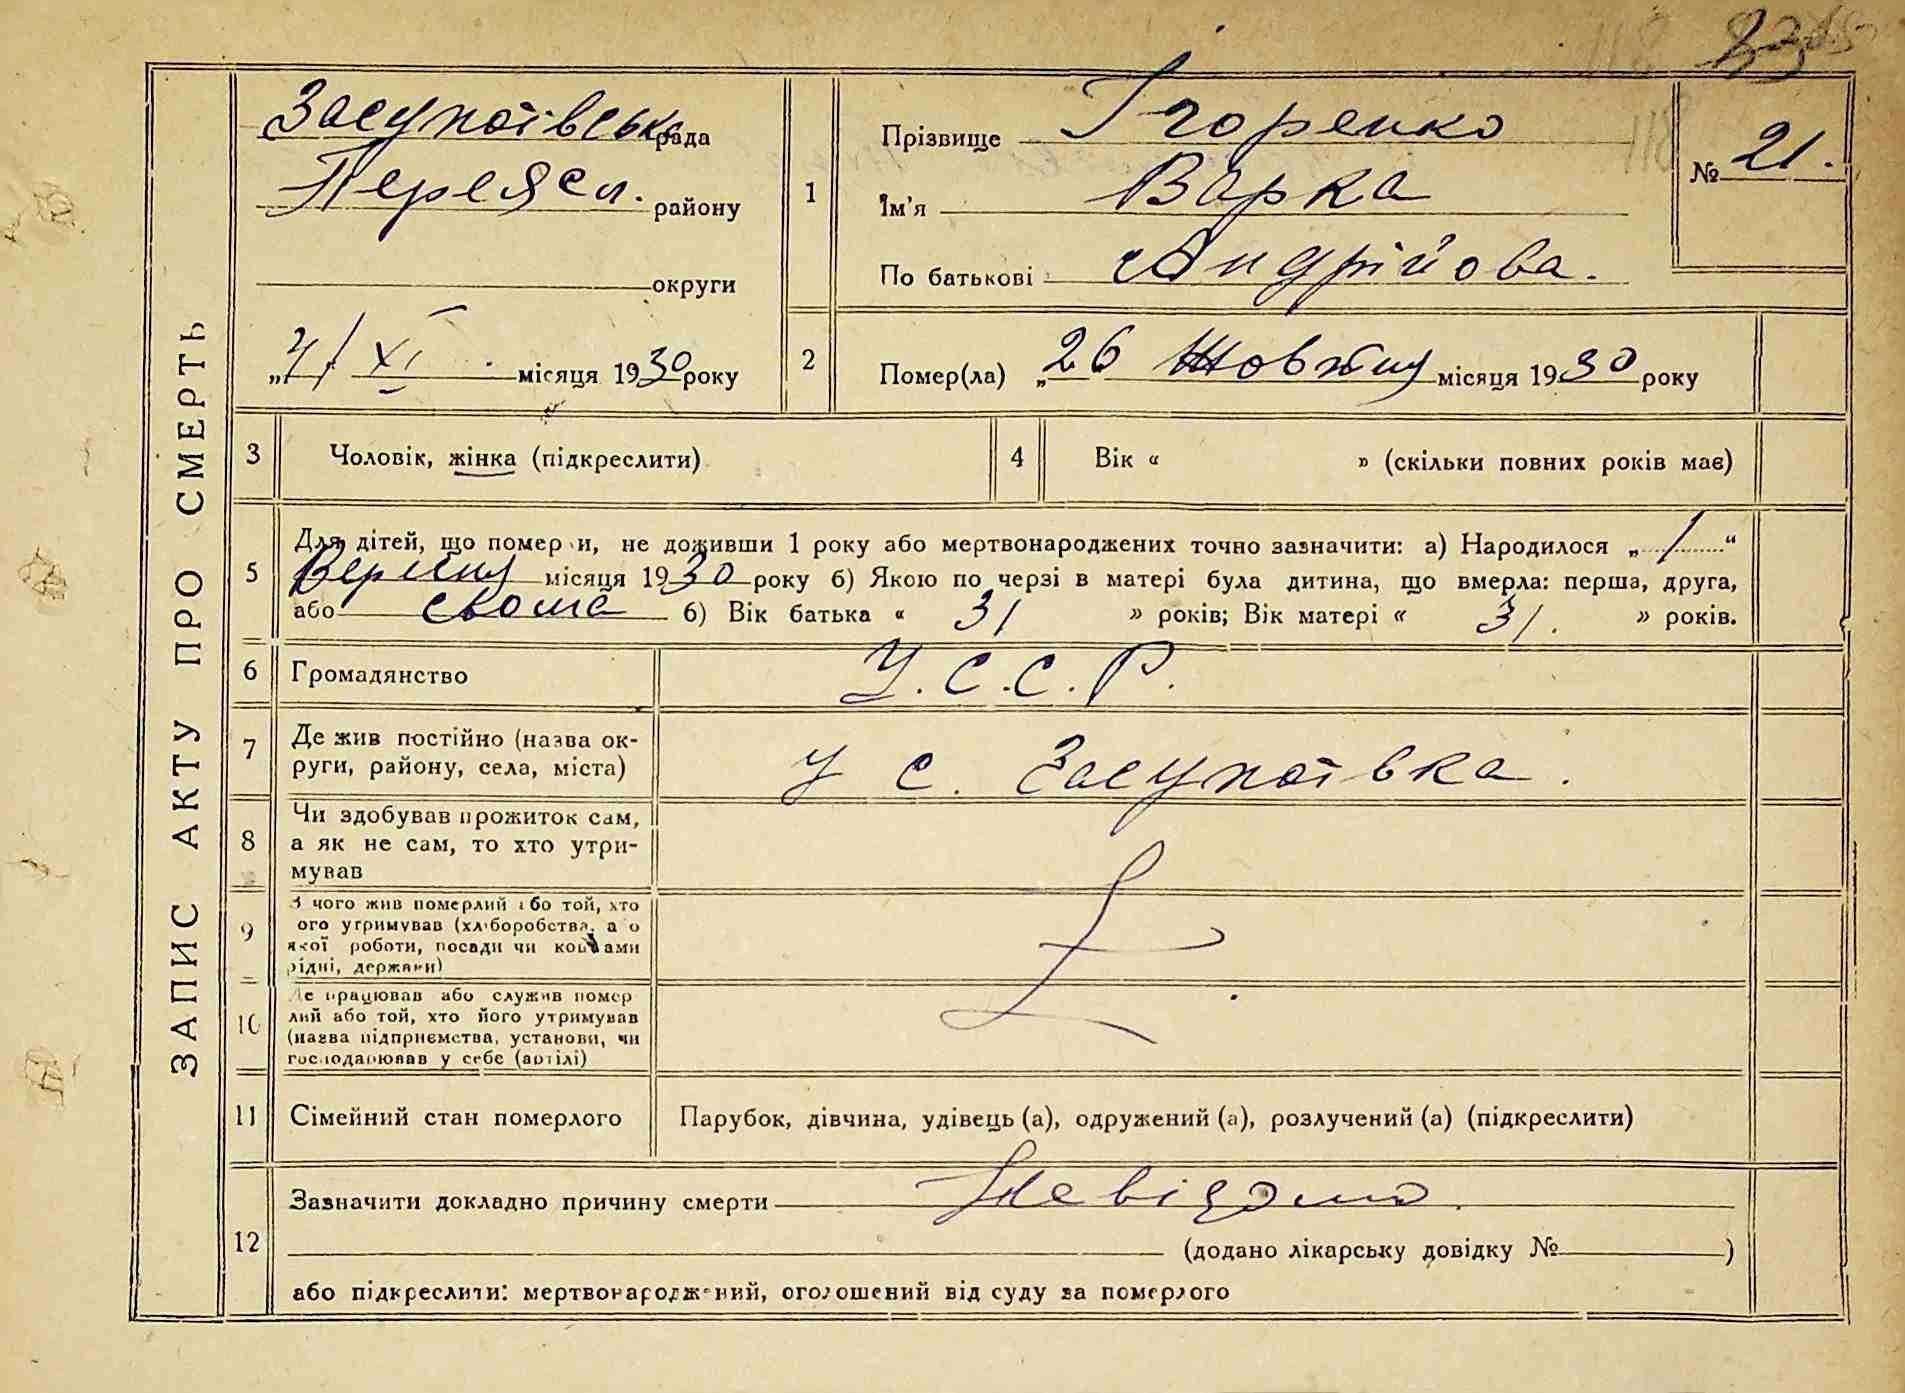 ЗАПИС АКТУ ПРО СМЕРТЬ
Засупоївська рада
Переясл. району
округи
„4/XI місяця 1930 року
1
Прізвище Ігоренко
Ім'я Варка
По батькові Андрійова.
№ 21.
2
Помер(ла) „26 Жовтня місяця 1930 року
3
Чоловік, жінка (підкреслити)
4
Вік « » (скільки повних років має)
5
Для дітей, що померли, не доживши 1 року або мертвонароджених точно зазначити: а) Народилося „1“
Вересня місяця 1930 року б) Якою по черзі в матері була дитина, що вмерла: перша, друга,
або сьома б) Вік батька « 31 » років; Вік матері « 31. » років.
6
Громадянство
У.С.С.Р.
7
Де жив постійно (назва ок-
руги, району, села, міста)
у с. Засупоївка.
8
Чи здобував прожиток сам,
а як не сам, то хто утри-
мував
9
З чого жив померлий або той, хто
його утримував (хліборобства, а о
якої роботи, посади чи коштами
рідні, держави)
10
Де працював або служив помер
лий або той, хто його утримував
(назва підприємства, установи, чи
господарював у себе (артілі)
11
Сімейний стан померлого
Парубок, дівчина, удівець (а), одружений (а), розлучений (а) (підкреслити)
12
Зазначити докладно причину смерти Невідомо.
(додано лікарську довідку № )
або підкреслити: мертвонароджений, оголошений від суду за померлого